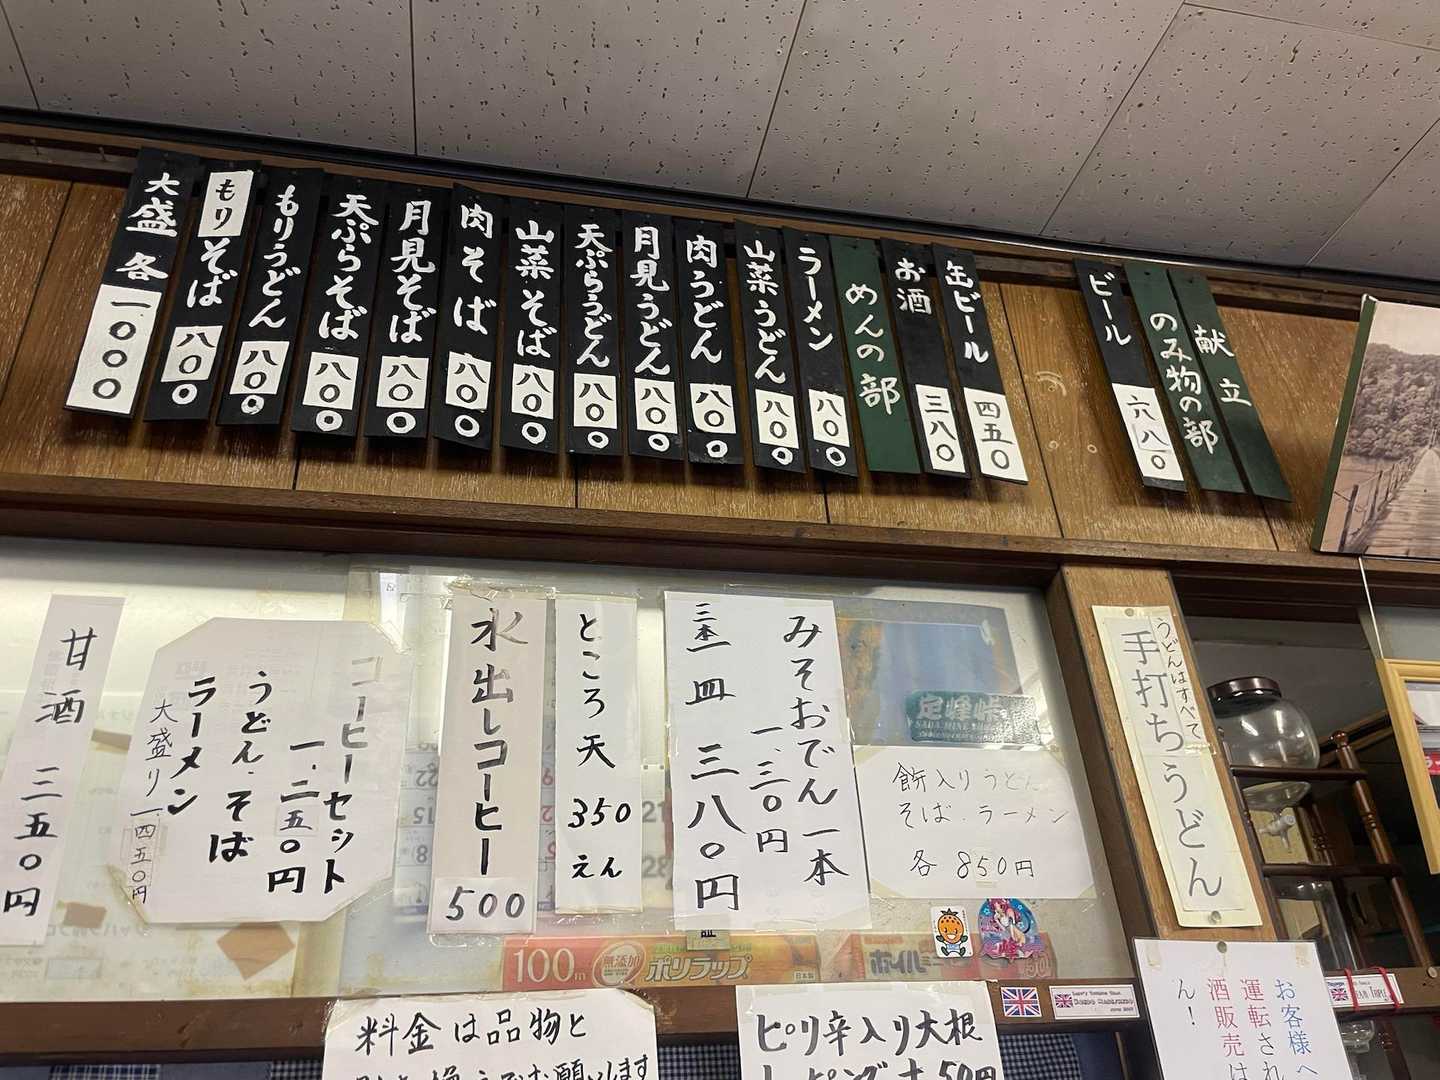 献立
のみ物の部
ビール
六八〇
缶ビール
四五〇
お酒
三八〇
めんの部
ラーメン
八〇〇
山菜うどん
八〇〇
肉うどん
八〇〇
月見うどん
八〇〇
天ぷらうどん
八〇〇
山菜そば
八〇〇
肉そば
八〇〇
月見そば
八〇〇
天ぷらそば
八〇〇
もりうどん
八〇〇
もりそば
八〇〇
大盛各
一〇〇〇
うどんはすべて
手打ちうどん
餅入りうどん
そば.ラーメン
各850円
みそおでん一本
一三〇円
三本一皿三八〇円
ところ天
350
えん
水出しコーヒー
500
コーヒーセット
一.二五〇円
うどん.そば
ラーメン
大盛り一.四五〇円
甘酒
二五〇円
定峰峠
100m
無添加
ポリラップ
日本製
お客様へ
運転され
酒販売は
ん!
料金は品物と
ピリ辛入り大根
50円